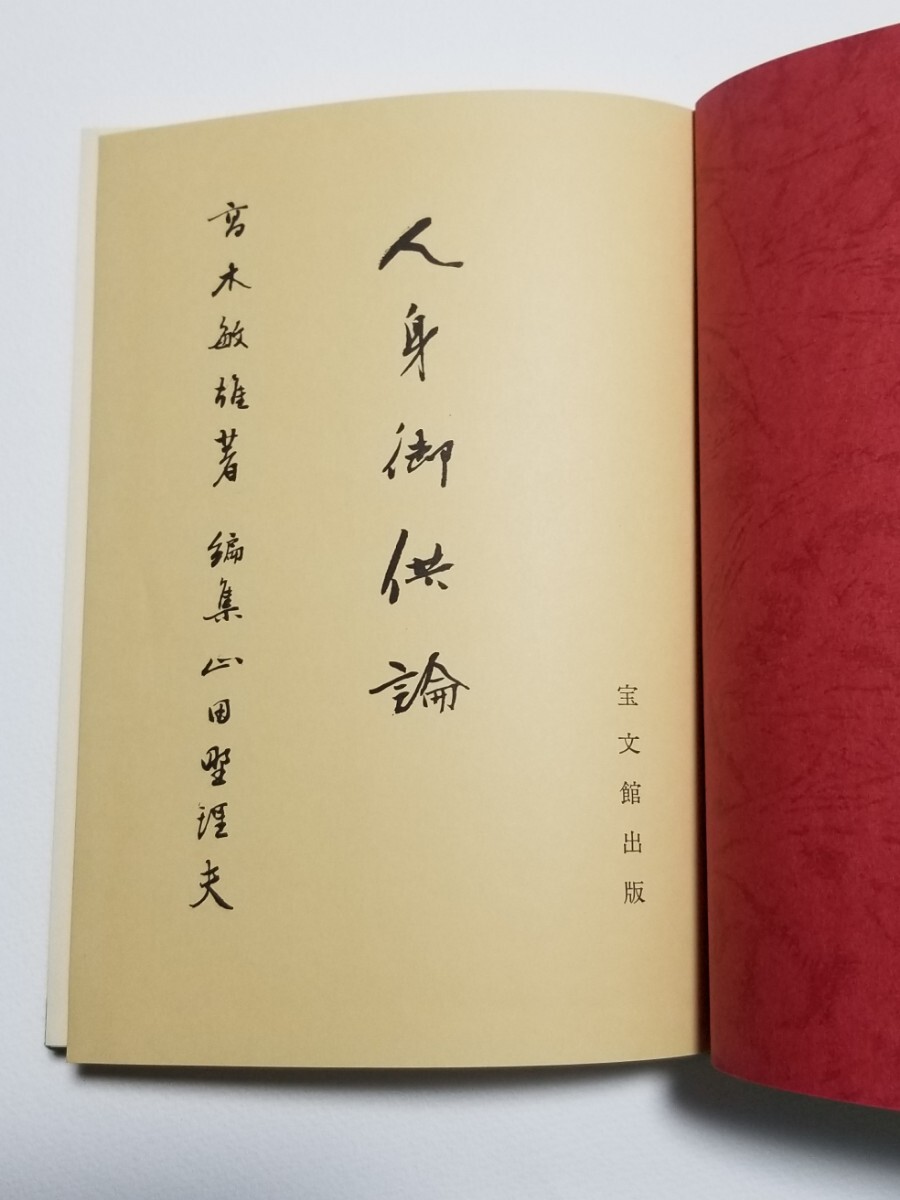 宝文館出版
人身御供論
高木敏雄著 編集山田野理夫